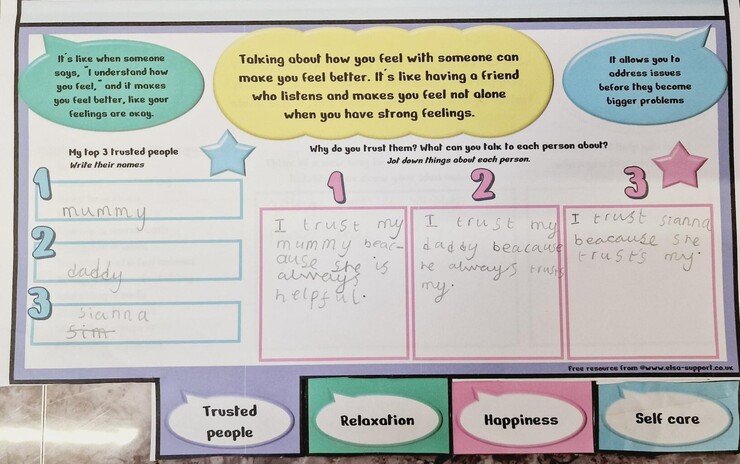 It's like when someone
says, "I understand how
you feel," and it makes
you feel better, like your
feelings are okay.
Talking about how you feel with someone can
make you feel better. It's like having a friend
who listens and makes you feel not alone
when you have strong feelings.
It allows you to
address issues
before they become
bigger problems
My top 3 trusted people
Write their names
Why do you trust them? What can you talk to each person about?
Jot down things about each person.
1
mummy
2
daddy
3
sianna
sim
1
I trust my
mummy beac-
ause she is
always
helpful.
2
I trust my
daddy beacause
he always trusts
my.
3
I trust sianna
beacause she
trusts my.
Free resource from @www.elsa-support.co.uk
Trusted
people
Relaxation
Happiness
Self care